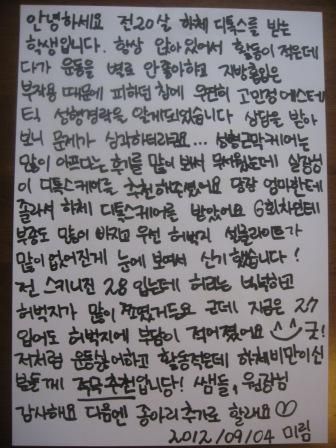 안녕하세요 전20살 하체 디톡스를 받는
학생입니다. 항상 앉아있어서 활동이 적은데
다가 운동을 별로 안좋아하고 지방흡입은
부작용 때문에 피하던 참에 우연히 고민정에스테
티 성형경락을 알게되었습니다 상담을 받아
보니 문제가 심각하더라고요... 성형근막케어는
많이 아프다는 후기를 많이 봐서 무서웠는데 실장님
이 디톡스케어를 추천해주셨어요 당장 엄마한테
졸라서 하체 디톡스케어를 받았어요 6회차인데
부종도 많이 빠지고 우선 허벅지 셀룰라이트가
많이 없어진게 눈에 보여서 신기했습니다!
전 스키니진 28 입는데 허리는 넉넉하고
허벅지가 많이 쪼였거든요 근데 지금은 27
입어도 허벅지에 부담이 적어졌어요 ^^굿!
저처럼 운동싫어하고 활동적은데 하체비만이신
분들께 적극추천입니다! 쌤들, 원장님
감사해요 다음엔 종아리추가로 할래요♡
2012/09/04 미림